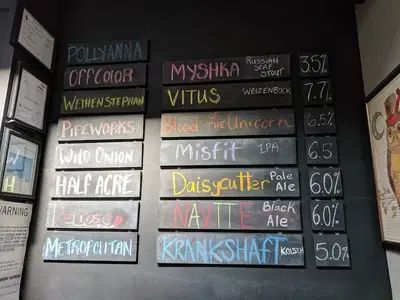 POLLYANNA
OFFCOLOR MYSHKA RUSSIAN SERF STOUT 3.5%
WEIHENSTEPHAN VITUS WEIZENBOCK 7.7%
PIPEWORKS Blood of the Unicorn 6.5%
WILD ONION Misfit IPA 6.5
HALF ACRE Daisycutter Pale Ale 6.0%
NAVETTE Black Ale 6.0%
METROPOLITAN KRANKSHAFT KOLSCH 5.0%
WARNING